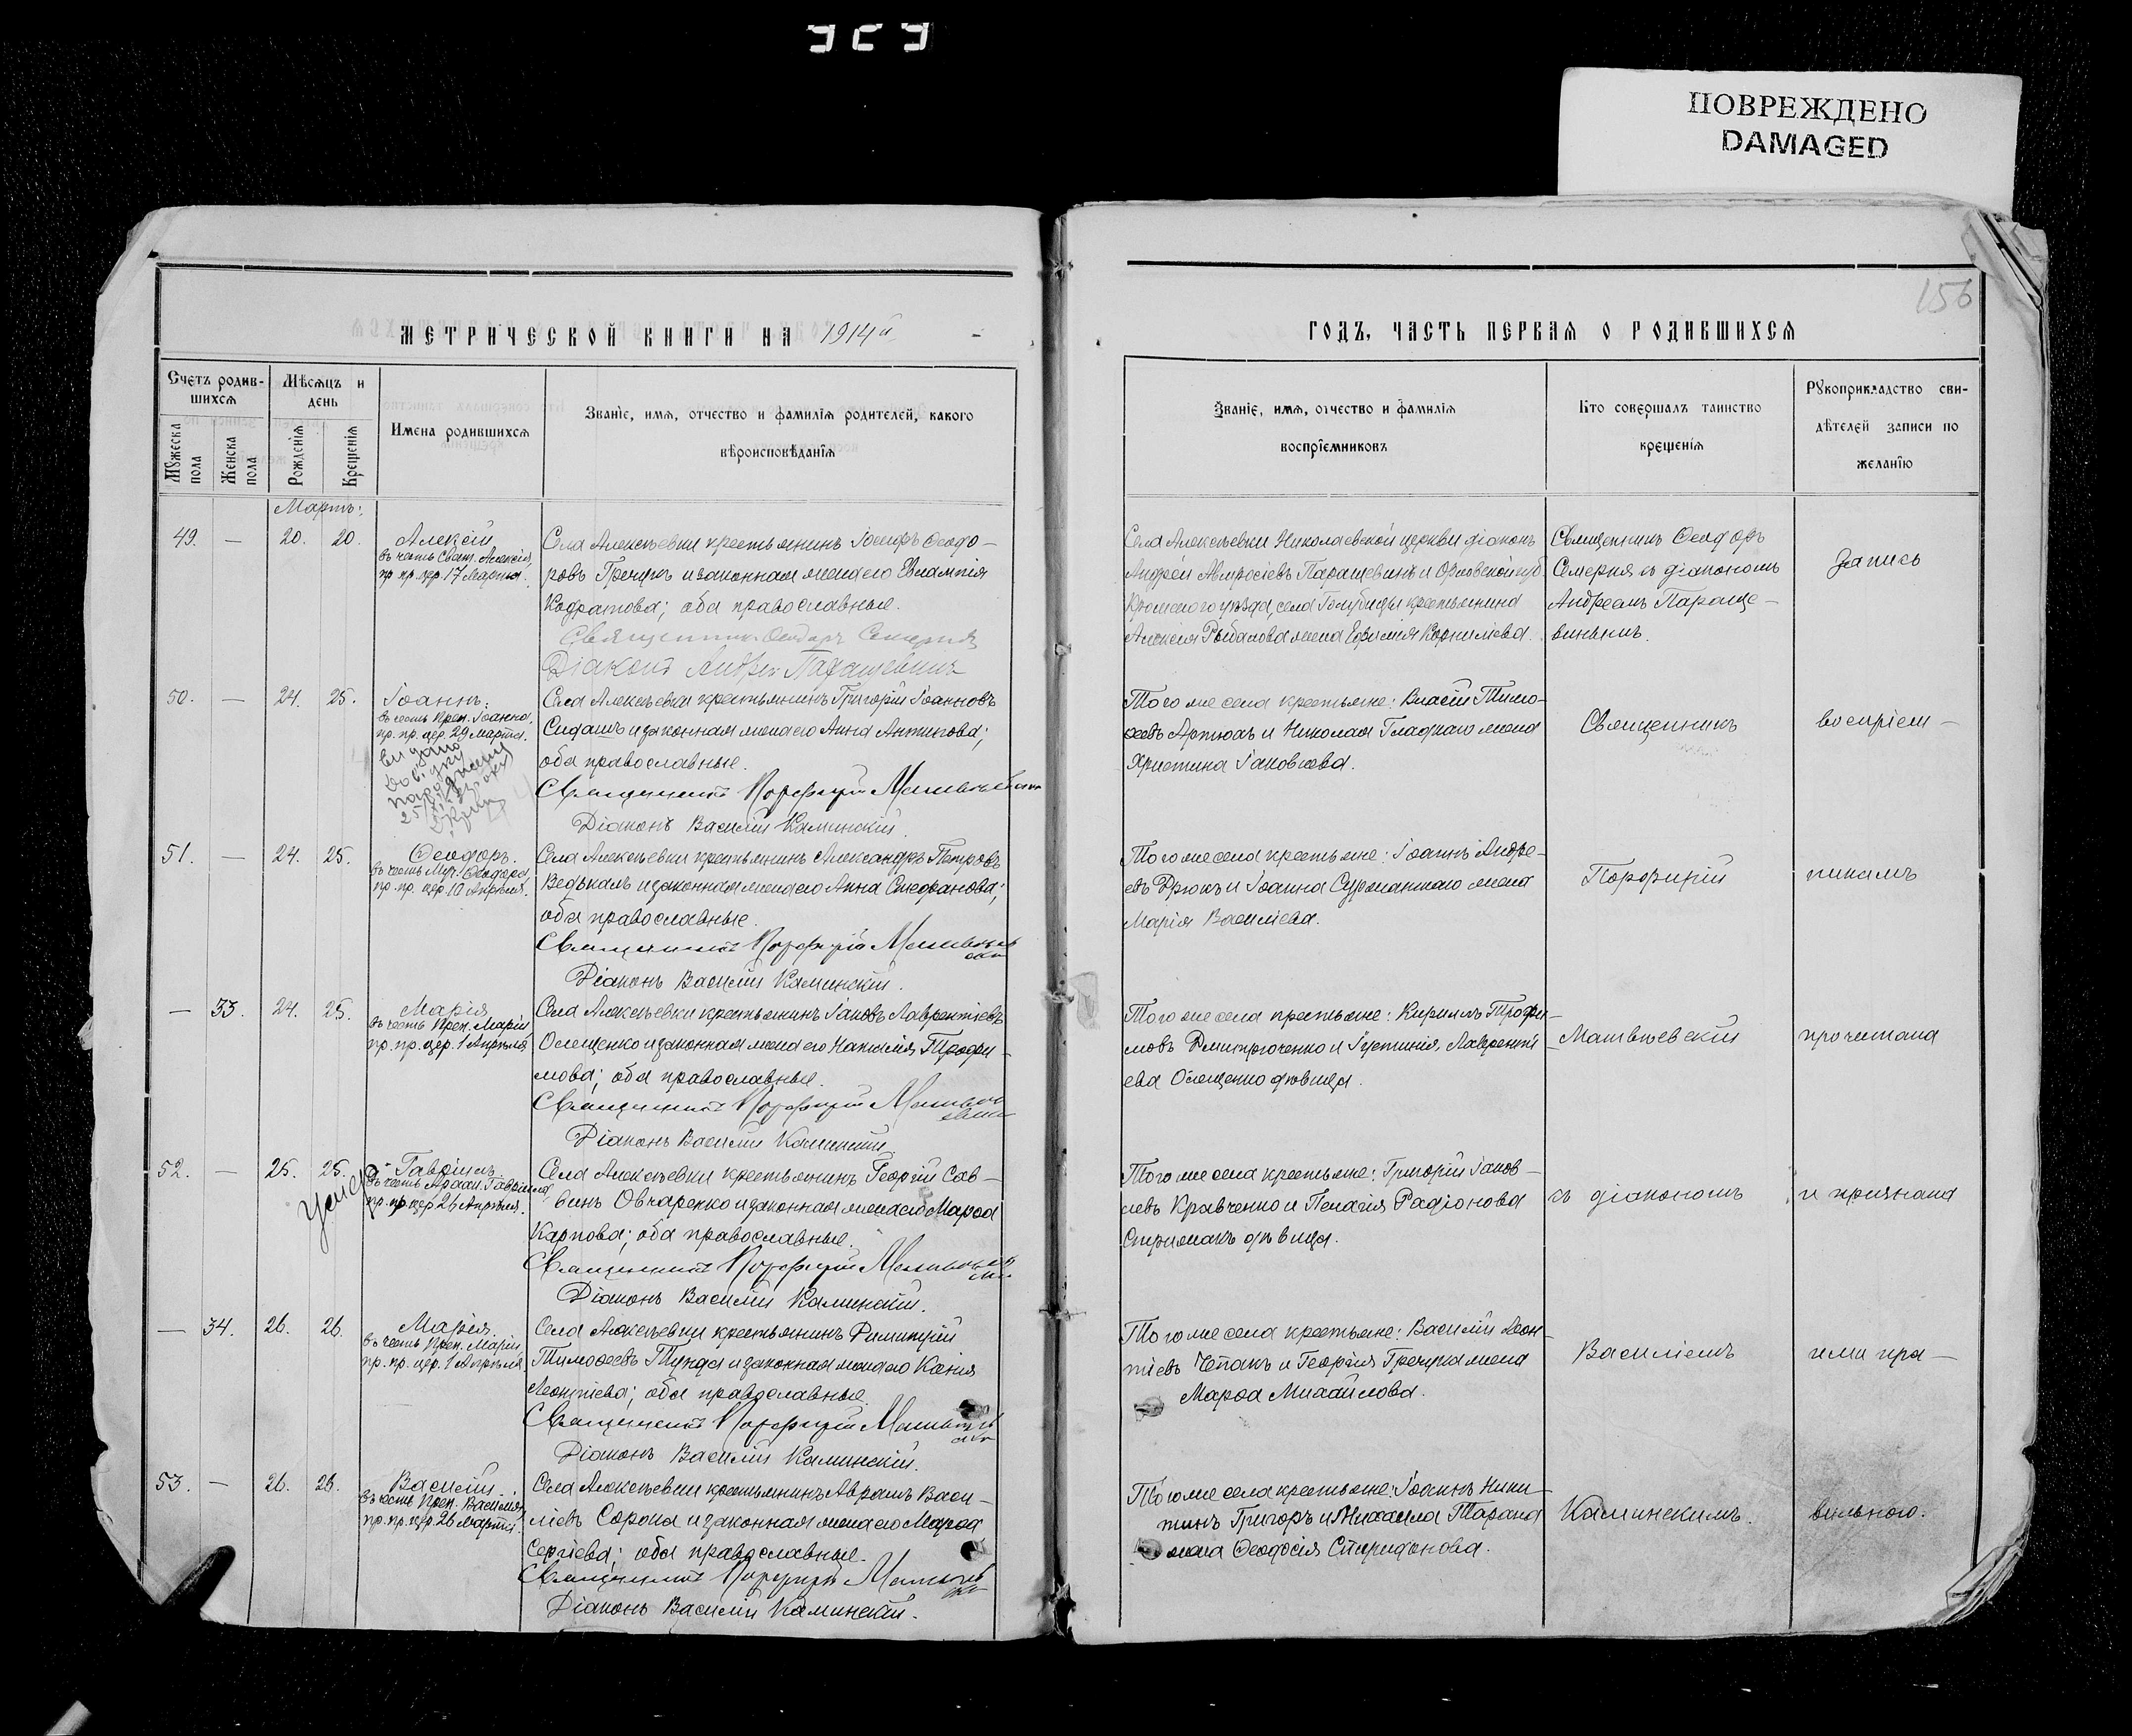 ПОВРЕЖДЕНО
DAMAGED
156
МЕТРИЧЕСКОЙ КНИГИ НА 1914й
ГОДЪ, ЧАСТЬ ПЕРВАЯ О РОДИВШИХСЯ
Счетъ родив-
шихся
Мѣсяцъ и
день
Мужеска
пола
Женска
пола
Рожденія
Крещенія
Имена родившихся
Званіе, имя, отчество и фамилія родителей, какого
вѣроисповѣданія
Званіе, имя, отчество и фамилія
воспріемниковъ
Кто совершалъ таинство
крещенія
Рукоприкладство сви-
дѣтелей записи по
желанію
Мартъ:
49. — 20. 20.
Алексій
въ честь Свят. Алексія,
пр. пр. цер. 17 Марта.
Села Алексѣевки крестьянинъ Іосифъ Ѳеодо-
ровъ Гречук и законная жена его Евлампія
Кодратова; оба православные.
Священникъ Ѳеодоръ Семерня
Діаконъ Андрей Паращевинъ
Села Алексѣевки Николаевской церкви діаконъ
Андрей Амвросіевъ Паращевинъ и Орловской губ.
уѣзда, села Голубицы крестьянина
Алексія Рыбалова жена Ефимія Корниліева.
Священникъ Ѳеодоръ
Семерня съ діакономъ
Андреемъ Параще-
винымъ.
Запись
50. — 24. 25.
Іоаннъ.
въ честь Преп. Іоанна,
пр. пр. цер. 29 Марта.
Села Алексѣевки крестьянинъ Григорій Іоанновъ
Сидашъ и законная жена его Анна Антипова;
оба православные.
Священникъ Порфирій Матвѣевскій
Діаконъ Василій Каминскій.
Того же села крестьяне: Власій Тимо-
ѳеевъ Артюхъ и Николая Гладкаго жена
Христина Іаковлева.
Священникъ
воспріем-
51. — 24. 25.
Ѳеодоръ.
въ честь Муч. Ѳеодора,
пр. пр. цер. 10 Апрѣля.
Села Алексѣевки крестьянинъ Александръ Петровъ
Ведькалъ и законная жена его Анна Стефанова;
оба православные.
Священникъ Порфирій Матвѣев
скій
Діаконъ Василій Каминскій.
Того же села крестьяне: Іоаннъ Андре-
евъ Дрюкъ и Іоанна Сурманскаго жена
Марія Василіева.
Порфирій
никамъ
— 33. 24. 25.
Марія
въ честь Преп. Маріи
пр. пр. цер. 1 Апрѣля
Села Алексѣевки крестьянинъ Іаковъ Лаврентіевъ
Олещенко и законная жена его Наталія Трофи-
мова; оба православные.
Священникъ Порфирій Матвѣ
евскій
Діаконъ Василій Каминскій.
Того же села крестьяне: Кириллъ Трофи-
мовъ Дмитроченко и Іустинія Лаврентi
ева Олещенко дѣвица.
Матвѣевскій
прочитана
52. — 25. 25.
Умеръ
Гавріилъ
въ честь Архан. Гавріила,
пр. пр. цер. 26 Апрѣля.
Села Алексѣевки крестьянинъ Георгій Сав-
винъ Овчаренко и законная жена его Марѳа
Карпова; оба православные.
Священникъ Порфирій Матвѣев
скій
Діаконъ Василій Каминскій.
Того же села крестьяне: Григорій Іаков-
левъ Кравченко и Пелагія Радіонова
Стримакъ дѣвица.
съ діакономъ
и признана
— 34. 26. 26.
Марія
въ честь Преп. Маріи,
пр. пр. цер. 1 Апрѣля
Села Алексѣевки крестьянинъ Димитрій
Тимоѳеевъ Тунда и законная жена его Ксенія
Леонтіева; оба православные.
Священникъ Порфирій Матвѣев
скій
Діаконъ Василій Каминскій.
Того же села крестьяне: Василій Леон-
тіевъ Чепакъ и Георгія Гречука жена
Марѳа Михайлова.
Василіемъ
ими пра-
53. — 26. 26.
Василій.
въ честь Преп. Василія,
пр. пр. цер. 26 Марта.
Села Алексѣевки крестьянинъ Аврамъ Васи-
ліевъ Сорока и законная жена его Марѳа
Сергіева; оба православные.
Священникъ Порфирій Матвѣев
скій
Діаконъ Василій Каминскій.
Того же села крестьяне: Іоаннъ Ники-
тинъ Григоръ и Михаила Тарана
жена Ѳеодосія Спиридонова.
Каминскимъ.
вильною.